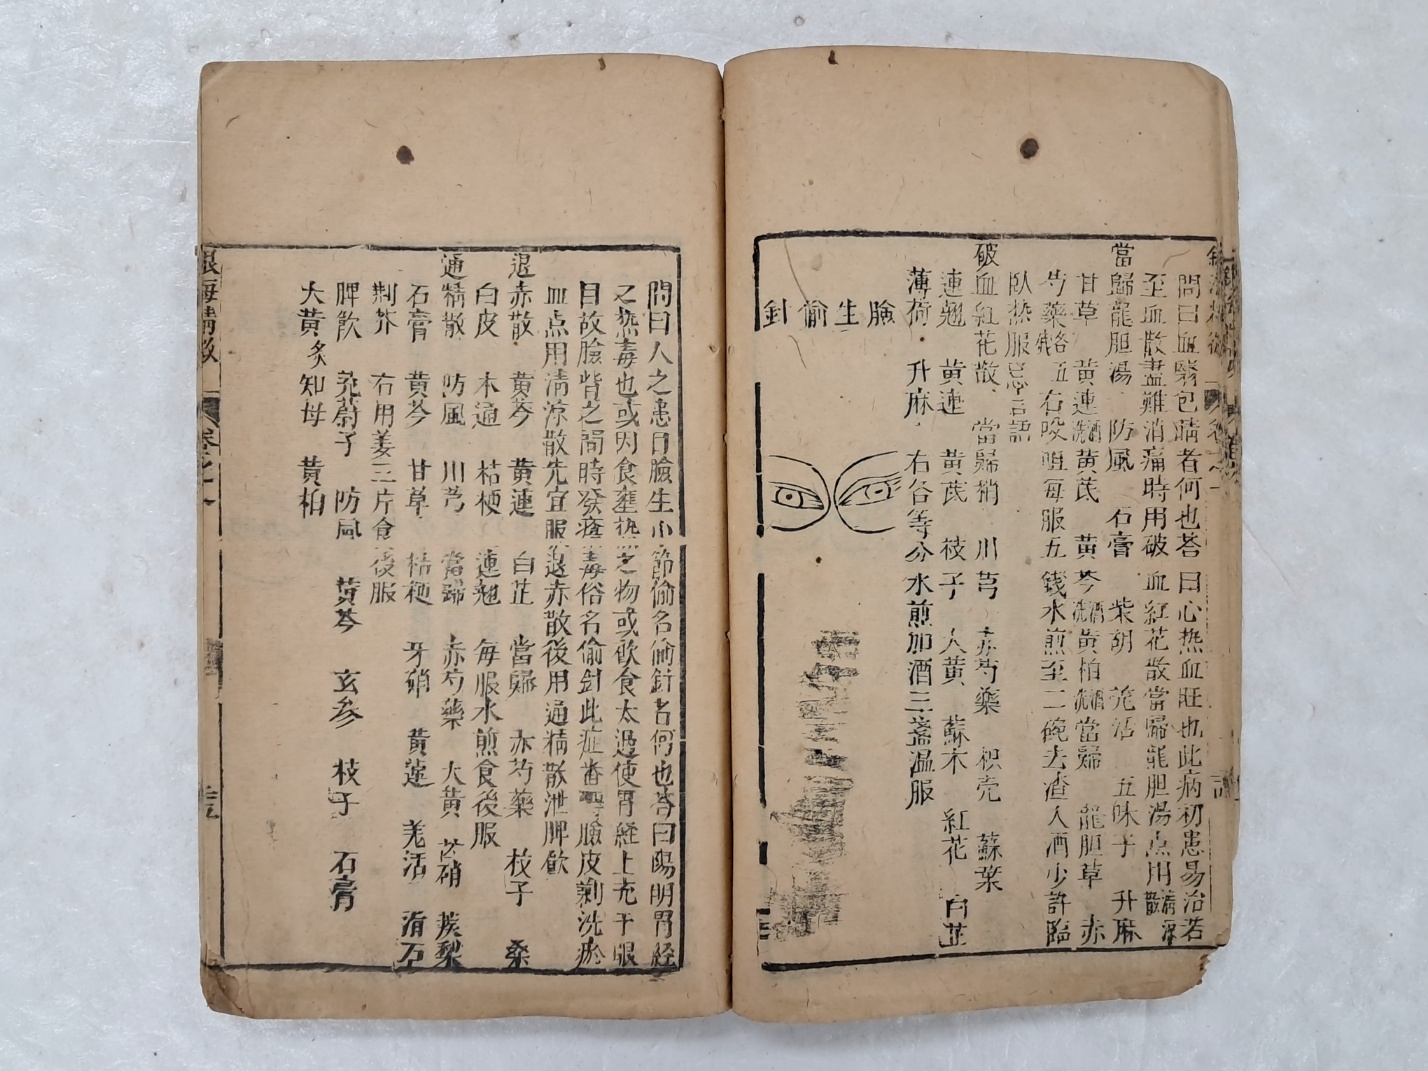 問曰血翳包睛者何也答曰心热血旺也此病初患易治若
至血散盡難消痛時用破血紅花散當歸龍胆湯点用清凉散
當歸龍胆湯 防風 石膏 柴胡 羌活 五味子 升麻
甘草 黄連酒 黄茋 黄芩酒 黄柏酒 當歸 龍胆草 赤
芍藥各五錢 右㕮咀每服五錢水煎至二碗去渣入酒少許臨
臥热服忌言語
破血紅花散 當歸梢 川芎 赤芍藥 枳壳 蘇葉
連翹 黄連 黄茋 枝子 大黄 蘇木 紅花 白芷
薄荷 升麻 右各等分水煎加酒三盞温服
臉生偷針
問曰人之患目臉生小節偷名偷針者何也答曰陽明胃経
之热毒也或因食壅热之物或飲食太過使胃経上充于眼
目故臉眥之間時發瘡毒俗名偷針此症番 臉皮剝洗瘀
血点用清凉散先宜服退赤散後用通精散泄脾飲
退赤散 黄芩 黄連 白芷 當歸 赤芍藥 枝子 桑
白皮 木通 桔梗 連翹 每服水煎食後服
通精散 防風 川芎 當歸 赤芍藥 大黄 芒硝 蒺梨
石膏 黄芩 甘草 桔梗 牙硝 黄連 羌活 滑石
荆芥 右用姜三片食後服
脾飲 茺蔚子 防風 黄芩 玄参 枝子 石膏
大黄炙 知母 黄柏
銀海精微 卷之上